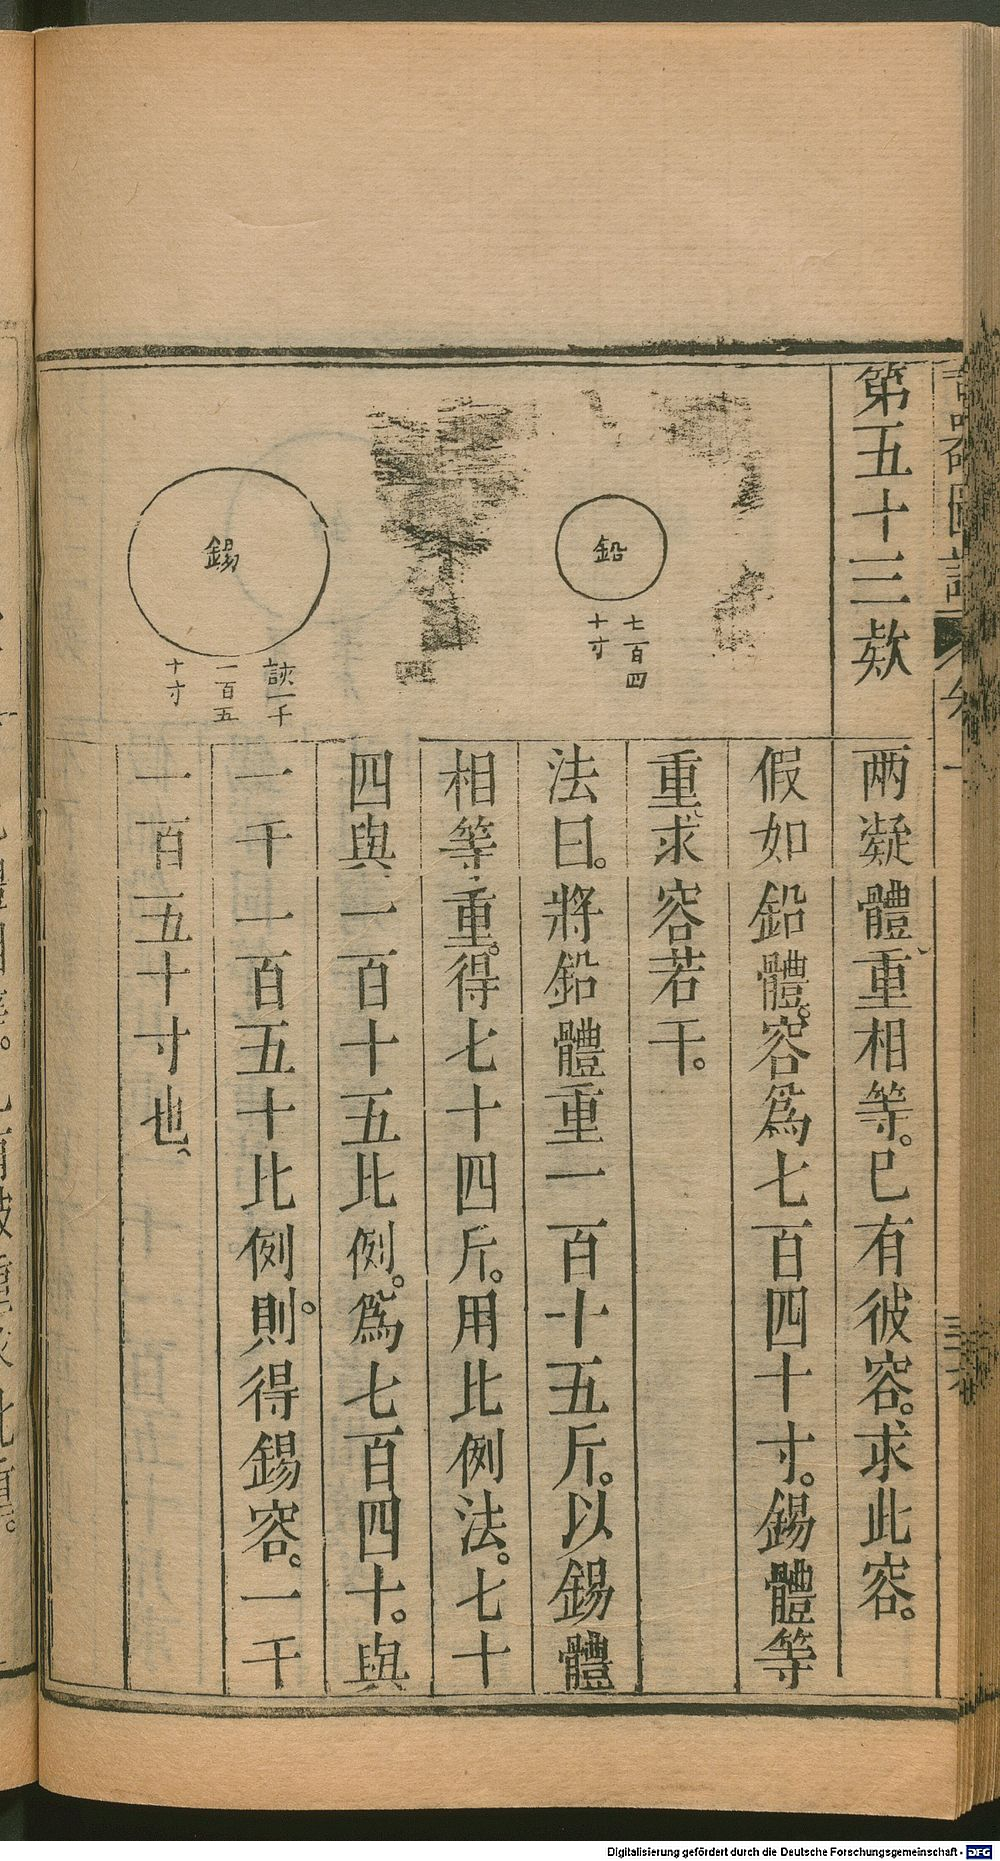 第五十三欵
兩凝體重相等。已有彼容。求此容。
假如鉛體。容爲七百四十寸。錫體等
重。求容若干。
法曰。將鉛體重一百十五斤。以錫體
相等重。得七十四斤。用比例法。七十
四與一百十五比例。爲七百四十。與
一千一百五十比例。則得錫容。一千
一百五十寸也。
鉛
七百四
十寸
錫
該一千
一百五
十寸
Digitalisierung gefördert durch die Deutsche Forschungsgemeinschaft - DFG